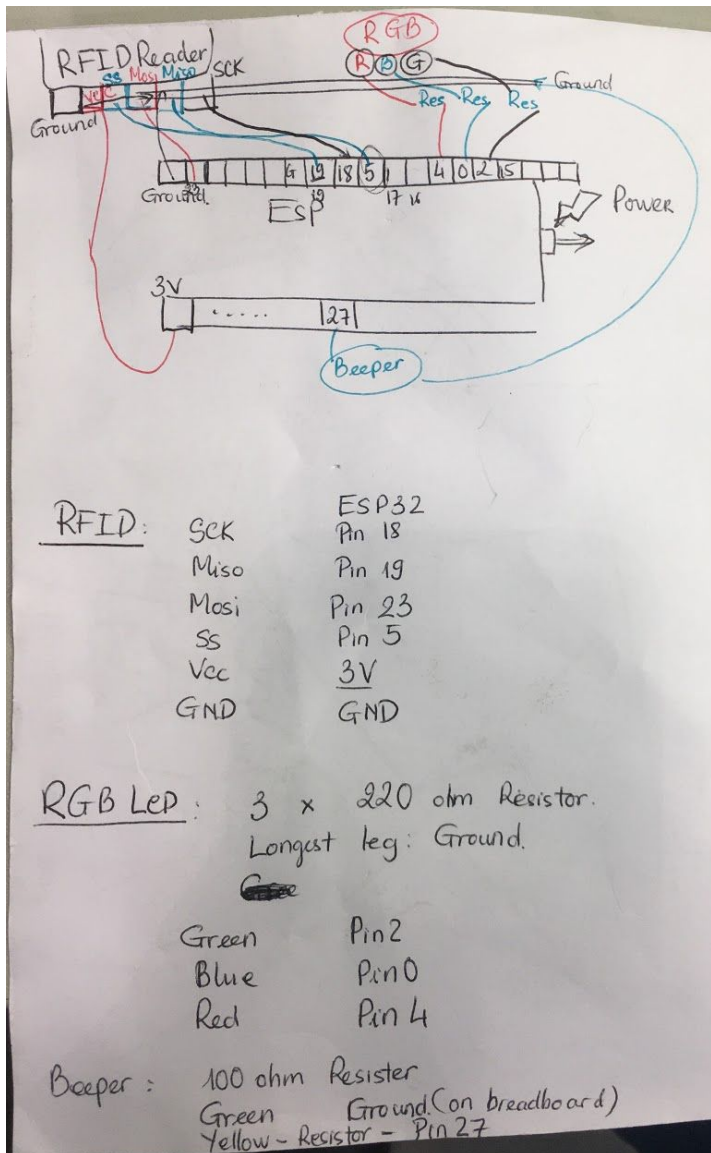 RFID Reader
SS Mosi Miso SCK
Vcc
Ground
RGB
R B G
Res Res Res
Ground
G 19 18 5 4 0 2 15
19 17 16
Ground.
Esp
Power
3V
..... 27
Beeper
RFID: ESP32
SCK Pin 18
Miso Pin 19
Mosi Pin 23
SS Pin 5
Vcc 3V
GND GND
RGB LeD : 3 x 220 ohm Resistor.
Longest leg: Ground.
Green Pin2
Blue Pin0
Red Pin 4
Beeper : 100 ohm Resister
Green Ground.(on breadboard)
Yellow - Resistor - Pin 27